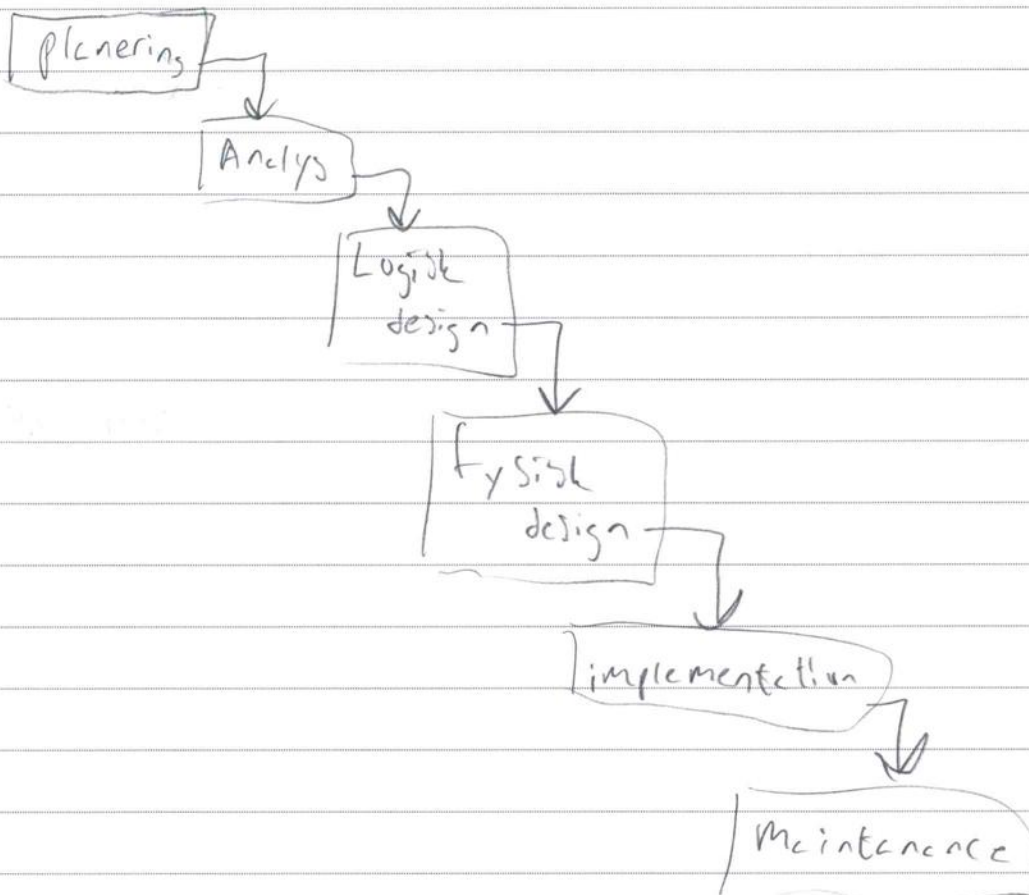 Planering
Analys
Logisk
design
Fysisk
design
implementation
Maintenance